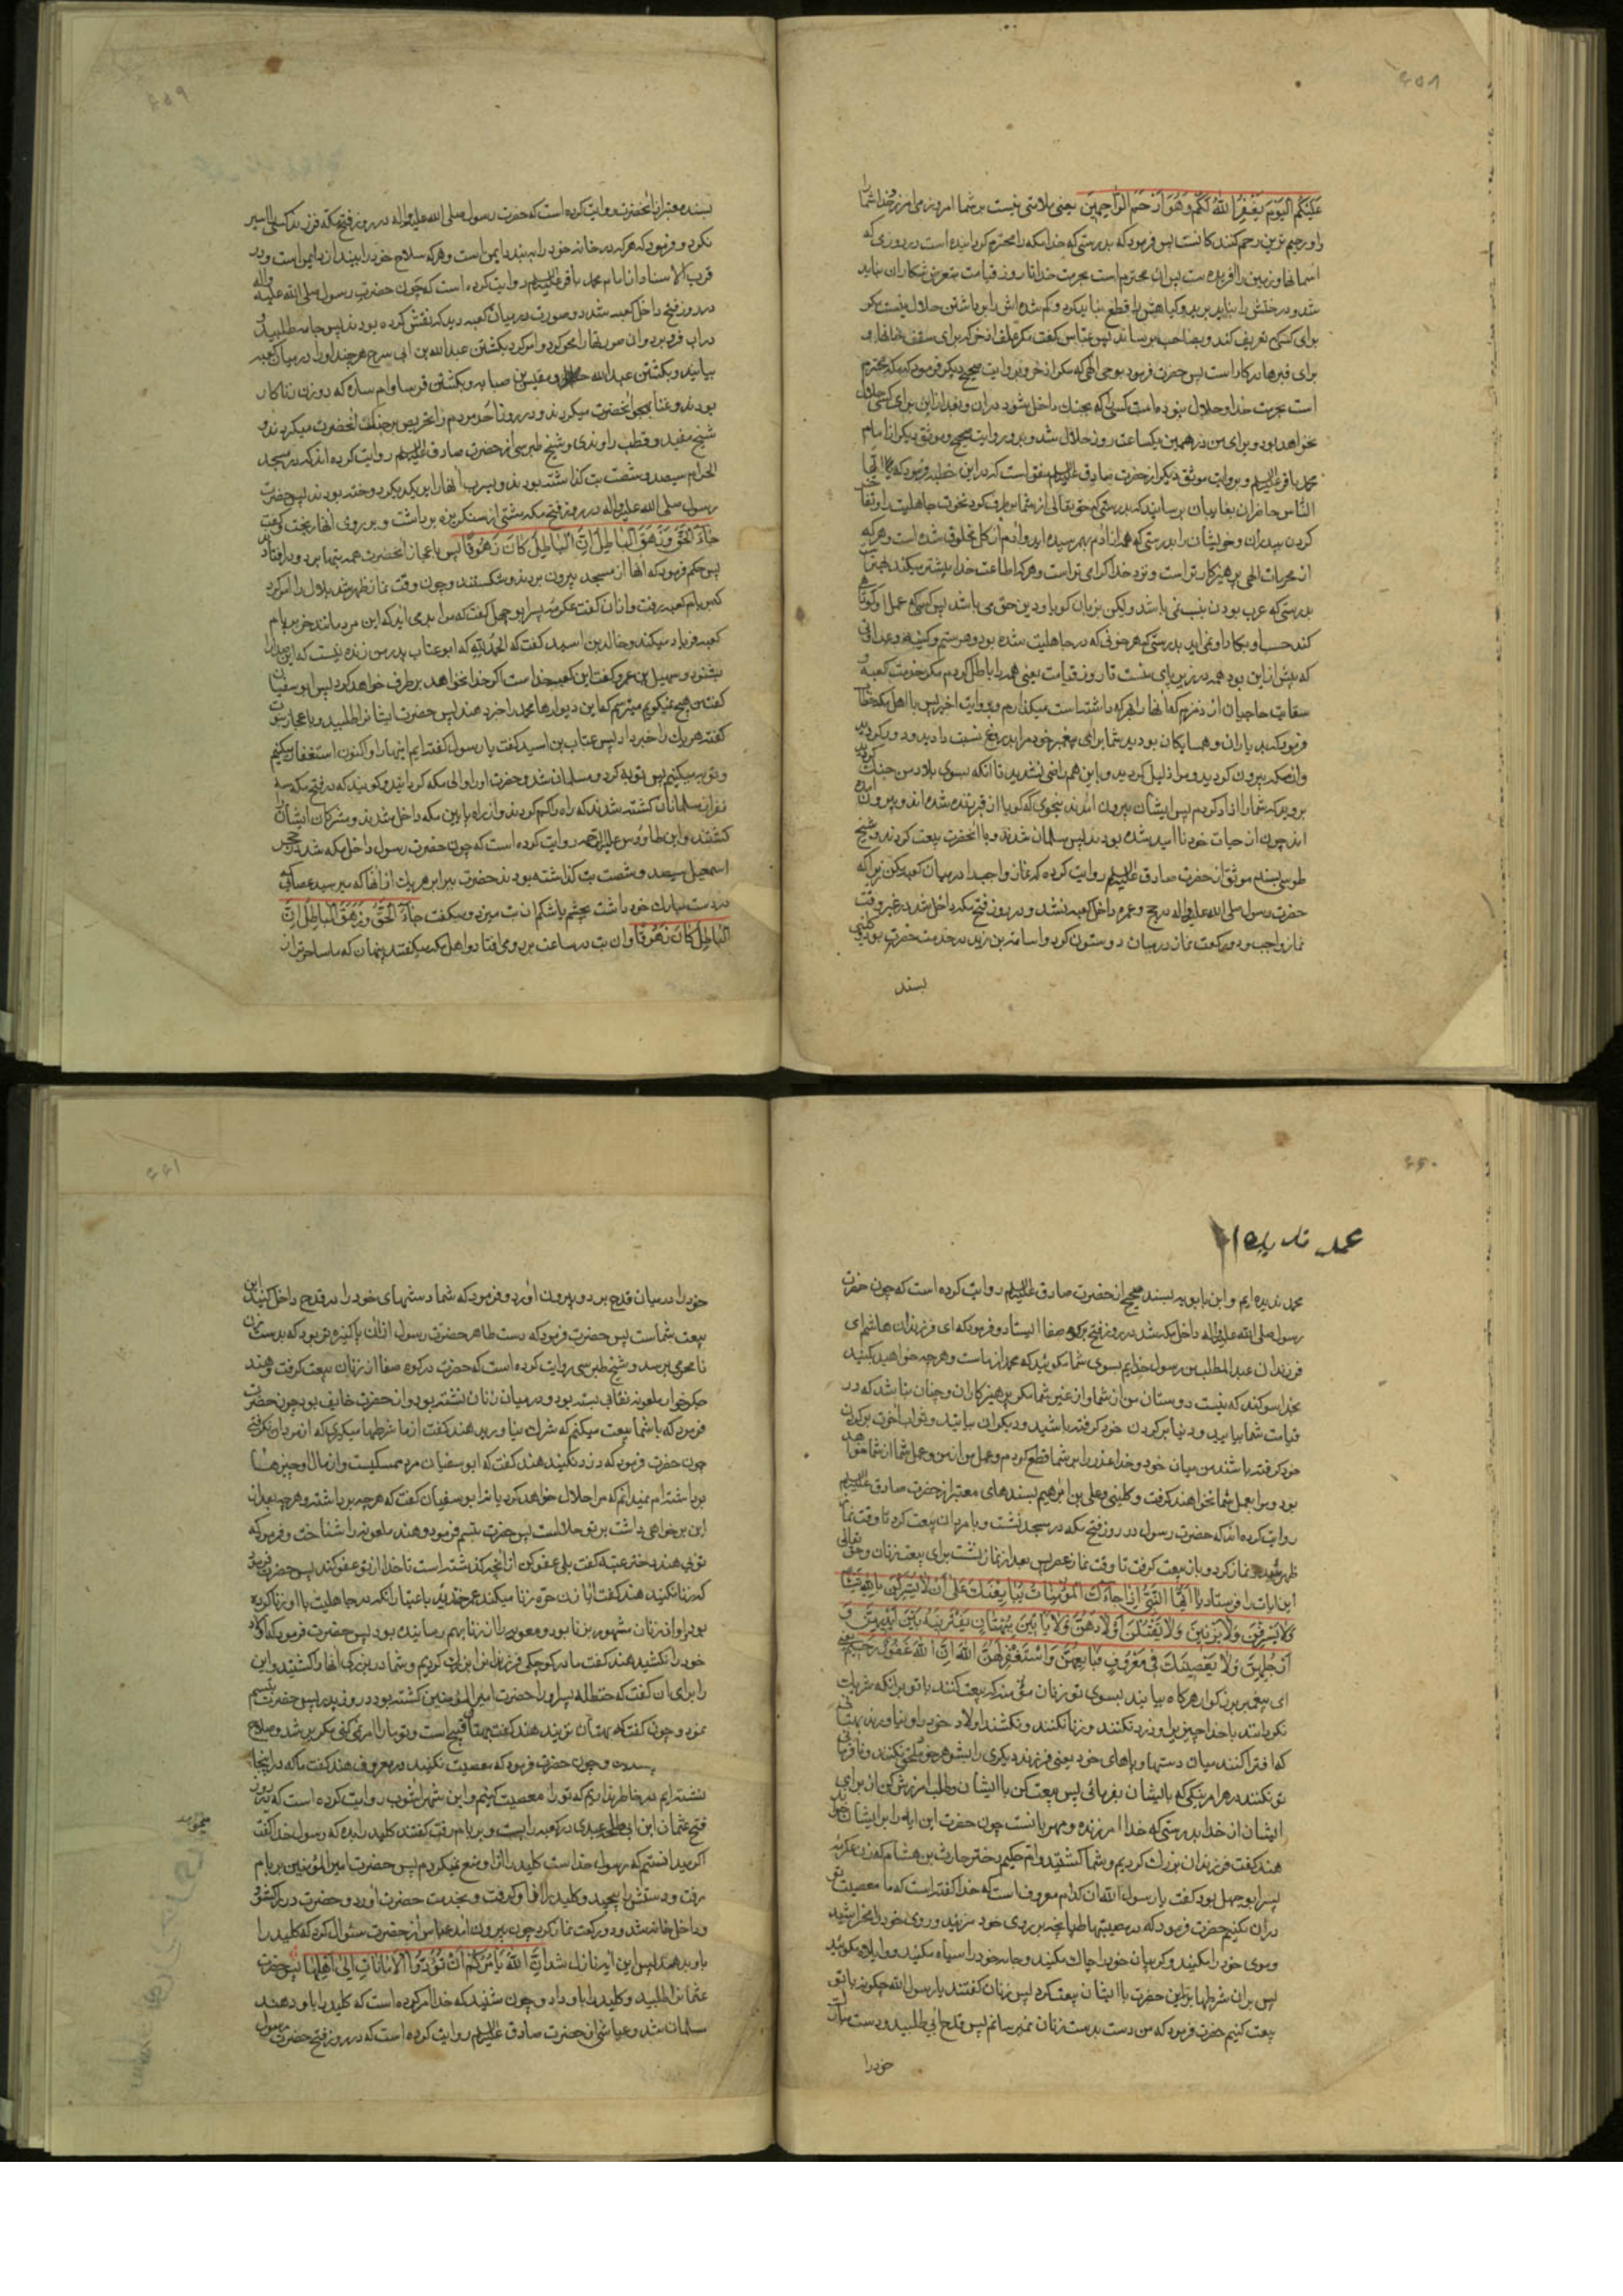 ٤٥٨
عَلَيْكُمُ الْيَوْمَ يَغْفِرُ اللهُ لَكُمْ وَهُوَ اَرْحَمُ الرَّاحِمِينَ يعنى ملامتى نيست بر شما امروز مى امرزد خدا شما را
و او رحيم ترين رحم كنندكانست پس فرمود كه بدرستى كه خدا مكه را محترم كردانيده است در روزى كه
اسمانها و زمين را افريده است پس ان محترم است بحرمت خدا تا روز قيامت متعرض شكار ان نبايد
شد و درختش را نبايد بريد و كياهش را قطع نبايد كرد و كم شده اش را برداشتن حلال نيست مكر
براى كسى كه تعريف كند و بصاحبش برساند پس عباس كفت مكر علف اذخر كه براى سقف خانها و
براى قبرها در كار است پس حضرت فرمود بوحى الهى كه مكر اذخر و بروايت صحيح ديكر فرمود كه مكه محترم
است بحرمت خدا و حلال نبوده است كسى را كه بجنك داخل شود در ان و بعد از اين براى كسى حلال
نخواهد بود و براى من در همين يكساعت روز حلال شد و بدو روايت صحيح و موثق ديكر از امام
محمد باقر عليه السلم و بروايت موثق ديكر از حضرت صادق عليه السلم منقول است كه در اين خطبه فرمود كه ايها
الناس حاضران بغايبان برسانيد كه بدرستى كه حق تعالى از شما برطرف كرد نخوت جاهليت را و تفاخر
كردن بپدران و خويشان را بدرستى كه همه از ادم بهم رسيده ايد و ادم از كل مخلوق شده است و هر كه
از محرمات الهى پرهيزكار تر است و نزد خدا كرامى تر است و هر كه اطاعت خدا بيشتر ميكند بهتر است
بدرستى كه عرب بودن بنسب نمى باشد وليكن بزبان كويا و دين حق مى باشد پس كسى كه عمل او كوتاهى
كند حسب او بكار او نمى ايد بدرستى كه هر خونى كه در جاهليت شده بود و هر ستم و كينه و عداوتى
كه پيش از اين بود همه در زير پاى منست تا روز قيامت يعنى همه را باطل كردم مكر خدمت كعبه و
سقايت حاجيان از زمزم كه انها را بهر كه داشته است ميكذارم و بروايت اخر پس با اهل مكه خطاب
فرمود كه بد ياران و همسايكان بوديد شما براى پيغمبر خود مرا بدروغ نسبت داديد و دور كرديد
و از مكه بيرون كرديد و مرا ذليل كرديد و باين هم راضى نشديد تا انكه بسوى بلاد من جنك كرديد
برويد كه شما را ازاد كردم پس ايشان بيرون امدند بنحوى كه كويا از قبر زنده شده اند و بيرون امده
اند چون از حيات خود نا اميد شده بودند پس مسلمان شدند و با انحضرت بيعت كردند و شيخ
طوسى بسند موثق از حضرت صادق عليه السلم روايت كرده كه نماز واجب را در ميان كعبه مكن زيرا كه
حضرت رسول صلى الله عليه واله در حج و عمره داخل كعبه نشد و در روز فتح مكه داخل شد در غير وقت
نماز واجب و دو ركعت نماز در ميان دو ستون كرد و اسامة بن زيد در خدمت حضرت بود و كلينى
بسند
٤٥٩
بسند معتبر از انحضرت روايت كرده است كه حضرت رسول صلى الله عليه واله در روز فتح مكه فرزند كسى را اسير
نكرد و فرمود كه هر كه در خانه خود را ببندد ايمن است و هر كه سلاح خود را بيندازد ايمن است و در
قرب الاسناد از امام محمد باقر عليه السلم روايت كرده است كه چون حضرت رسول صلى الله عليه واله
در روز فتح داخل كعبه شد دو صورت در ميان كعبه ديد كه نقش كرده بودند پس جامه طلبيد و
در اب فرو برد و ان صورتها را محو كرد و امر كرد بكشتن عبد الله بن ابى سرح هر چند او را در ميان كعبه
بيابند و بكشتن عبد الله و مقيس بن صبابه و بكشتن قرسا و ام ساره كه دو زن زناكار
بودند و غنا بهجو انحضرت ميكردند و در روز احد مردم را تحريص بر جنك انحضرت ميكردند و
شيخ مفيد و قطب راوندى و شيخ طبرسى از حضرت صادق عليه السلم روايت كرده اند كه در مسجد
الحرام سيصد و شصت بت كذاشته بودند و بسرب انها را بر يكديكر دوخته بودند پس حضرت
رسول صلى الله عليه واله در روز فتح مكه مشتى از سنكريزه برداشت و بر روى انها ريخت و كفت
جَاءَ الْحَقُّ وَزَهَقَ الْبَاطِلُ اِنَّ الْبَاطِلَ كَانَ زَهُوقًا پس باعجاز انحضرت همه بتها برو در افتادند
پس حكم فرمود كه انها را از مسجد بيرون بردند و شكستند و چون وقت نماز ظهر شد بلال را امر كرد
كه بر بام كعبه رفت و اذان كفت عكرمه پسر ابو جهل كفت كه مرا بدمى ايد كه اين مرد مانند خر بر بام
كعبه فرياد ميكند و خالد بن اسيد كفت كه الحمد لله كه ابو عتاب پدر من زنده نيست كه اين صدا را
بشنود و سهيل بن عمرو كفت اين كعبه خداست اكر خدا نخواهد بر طرف خواهد كرد پس ابو سفيان
كفت من هيچ نميكويم ميترسم كه اين ديوارها محمد را خبر دهند پس حضرت ايشان را طلبيد و باعجاز نبوت
كفته هر يك را خبر داد پس عتاب بن اسيد كفت يا رسول كفته ايم اينها را و اكنون استغفار ميكنيم
و توبه ميكنيم پس توبه كرد و مسلمان شد و حضرت او را والى مكه كردانيد و كويند كه در فتح مكه سه
نفر از مسلمانان كشته شدند كه راه را كم كردند و از راه پايين مكه داخل شدند و مشركان ايشان را
كشتند و ابن طاوس عليه الرحمه روايت كرده است كه چون حضرت رسول داخل مكه شد در حجر
اسمعيل سيصد و شصت بت كذاشته بودند حضرت ببرابر هر يك از انها كه ميرسيد عصائى كه
در دست مبارك خود داشت بچشم يا شكم ان بت ميزد و ميكفت جَاءَ الْحَقُّ وَزَهَقَ الْبَاطِلُ اِنَّ
الْبَاطِلَ كَانَ زَهُوقًا و ان بت در ساعت برو مى افتاد و اهل مكه ميكفتند پنهان كه ما ساحرتر از
٤٦٠
محمد نديده ايم و ابن بابويه بسند صحيح از حضرت صادق عليه السلم روايت كرده است كه چون حضرت
رسول صلى الله عليه واله داخل مكه شد در روز فتح بر كوه صفا ايستاد و فرمود كه اى فرزندان هاشم اى
فرزندان عبد المطلب من رسول خدايم بسوى شما مكوئيد كه محمد از ماست و هر چه خواهيم بكنيد
بخدا سوكند كه نيست دوستان من از شما و از غير شما مكر پرهيزكاران و چنان نباشد كه در
قيامت شما بياييد و دنيا بر كردن خود كرفته باشيد و ديكران بيايند و ثواب اخرت بر كردن
خود كرفته باشند من ميان خود و خدا عذر را بر شما قطع كردم و عمل من از من و عمل شما از شما خواهد
بود و مرا بعمل شما نخواهند كرفت و كلينى و على بن ابرهيم بسندهاى معتبر از حضرت صادق عليه السلم
روايت كرده اند كه حضرت رسول در روز فتح مكه در مسجد نشست و با مردان بيعت كرد تا وقت نماز
ظهر شد نماز كرد و باز بيعت كرفت تا وقت نماز عصر پس بعد از نماز نشست براى بيعت زنان و حق تعالى
اين ايات را فرستاد يَا اَيُّهَا النَّبِىُّ اِذَا جَاءَكَ الْمُؤْمِنَاتُ يُبَايِعْنَكَ عَلَى اَنْ لَا يُشْرِكْنَ بِاللهِ شَيْئًا
وَلَا يَسْرِقْنَ وَلَا يَزْنِينَ وَلَا يَقْتُلْنَ اَوْلَادَهُنَّ وَلَا يَأْتِينَ بِبُهْتَانٍ يَفْتَرِينَهُ بَيْنَ اَيْدِيهِنَّ وَ
اَرْجُلِهِنَّ وَلَا يَعْصِينَكَ فِى مَعْرُوفٍ فَبَايِعْهُنَّ وَاسْتَغْفِرْ لَهُنَّ اللهَ اِنَّ اللهَ غَفُورٌ رَحِيمٌ يعنى
اى پيغمبر بزركوار هر كاه بيايند بسوى تو زنان مؤمنه كه بيعت كنند با تو بر انكه شريك
نكردانند با خدا چيزيرا و دزدى نكنند و زنا نكنند و نكشند اولاد خود را و نياورند بهتانى
كه افترا كنند ميان دستها و پاهاى خود يعنى فرزند ديكرى را بشوهر خود ملحق نكنند و نافرمانى
تو نكنند در هر امر نيكى كه بايشان بفرمائى پس بيعت كن با ايشان و طلب امرزش كن از براى
ايشان از خدا بدرستى كه خدا امرزنده و مهربانست چون حضرت اين ايه را بر ايشان خواند
هند كفت فرزندان بزرك كرديم و شما كشتيد و ام حكيم دختر حارث بن هشام كه زن عكرمه
پسر ابو جهل بود كفت يا رسول الله ان كدام معروفست كه خدا كفته است كه ما معصيت تو
در ان نكنيم حضرت فرمود كه در مصيبتها طپانچه بر روى خود مزنيد و روى خود را مخراشيد
و موى خود را مكنيد و كريبان خود را چاك مكنيد و جامه خود را سياه مكنيد و واويلاه مكوئيد
پس بر ان شرطها حضرت با ايشان بيعت كرد پس زنان كفتند يا رسول الله چكونه با تو
بيعت كنيم حضرت فرمود كه من دست بدست زنان نميرسانم پس قدح ابى طلبيد و دست مبارك
خود را
٤٦١
خود را در ميان قدح برد و بيرون اورد و فرمود كه شما دستهاى خود را در قدح داخل كنيد اين
بيعت شماست پس حضرت فرمود كه دست طاهر حضرت رسول ازان پاكيزه تر بود كه بدست زنان
نامحرمى برسد و شيخ طبرسى روايت كرده است كه حضرت در كوه صفا از زنان بيعت كرفت و هند
جكرخوار ملعونه نقابى بسته بود و در ميان زنان نشسته بود و از حضرت خايف بود چون حضرت
فرمود كه با شما بيعت ميكنم كه شرك نياوريد هند كفت از ما شرطها ميكيرى كه از مردان نكرفتى
چون حضرت فرمود كه دزدى نكنيد هند كفت كه ابو سفيان مرد ممسكيست و از مال او چيزها
برداشته ام نميدانم كه مرا حلال خواهد كرد يا نه ابو سفيان كفت كه هر چه برداشته و هر چه بعد از
اين برخواهى داشت بر تو حلالست پس حضرت تبسم فرمود و هند ملعونه را شناخت و فرمود كه
توئى هند دختر عتبه كفت بلى عفو كن از انچه كذشته است تا خدا از تو عفو كند پس حضرت فرمود
كه زنا نكنيد هند كفت ايا زن حره زنا ميكند عمر خنديد باعتبار انكه در جاهليت با او زنا كرده
بود و او از زنان مشهور بزنا بود و معويه را از زنا بهم رسانيده بود پس حضرت فرمود كه اولاد
خود را نكشيد هند كفت ما در كوچكى فرزندان را بزرك كرديم و شما در بزركى انها را كشتيد و اين
را براى ان كفت كه حنظله پسر او را حضرت امير المؤمنين كشته بود در روز بدر پس حضرت تبسم
نمود و چون كفت كه بهتان نزنيد هند كفت بهتان قبيح است و تو ما را امر نمى كنى مكر برشد و صلاح
و چون حضرت فرمود كه معصيت نكنيد در معروف هند كفت ما كه در اينجا
نشسته ايم در خاطر نداريم كه تو را معصيت كنيم و ابن شهراشوب روايت كرده است كه در روز
فتح عثمان ابن ابى طلحه عبدى در كعبه را بست و بر بام رفت كفتند كليد را بده كه رسول خدا كفت
اكر ميدانستم كه رسول خداست كليد را از او منع نميكردم پس حضرت امير المؤمنين بر بام
رفت و دستش را پيچيد و كليد را از او كرفت و بخدمت حضرت اورد و حضرت در را كشود
و داخل خانه شد و دو ركعت نماز كرد چون بيرون امد عباس از حضرت سئوال كرد كه كليد را
باو بدهد پس اين ايه نازل شد اِنَّ اللهَ يَأْمُرُكُمْ اَنْ تُؤَدُّوا الْاَمَانَاتِ اِلَى اَهْلِهَا پس حضرت
عثمان را طلبيد و كليد را باو داد و چون شنيد كه خدا امر كرده است كه كليد را باو دهند
مسلمان شد و عياشى از حضرت صادق عليه السلم روايت كرده است كه در روز فتح حضرت رسول